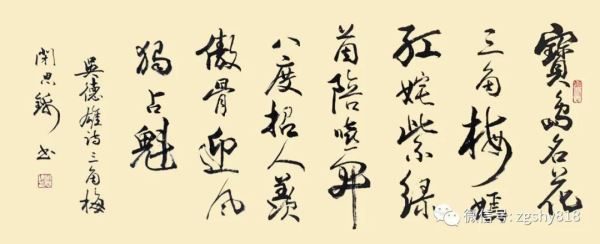 寶島名花
三角梅嫣
紅姹紫綠
茵陪
八度招人羨
傲骨迎風
獨占魁
吳德雄詩三角梅
思 書
微信号: zgshy818